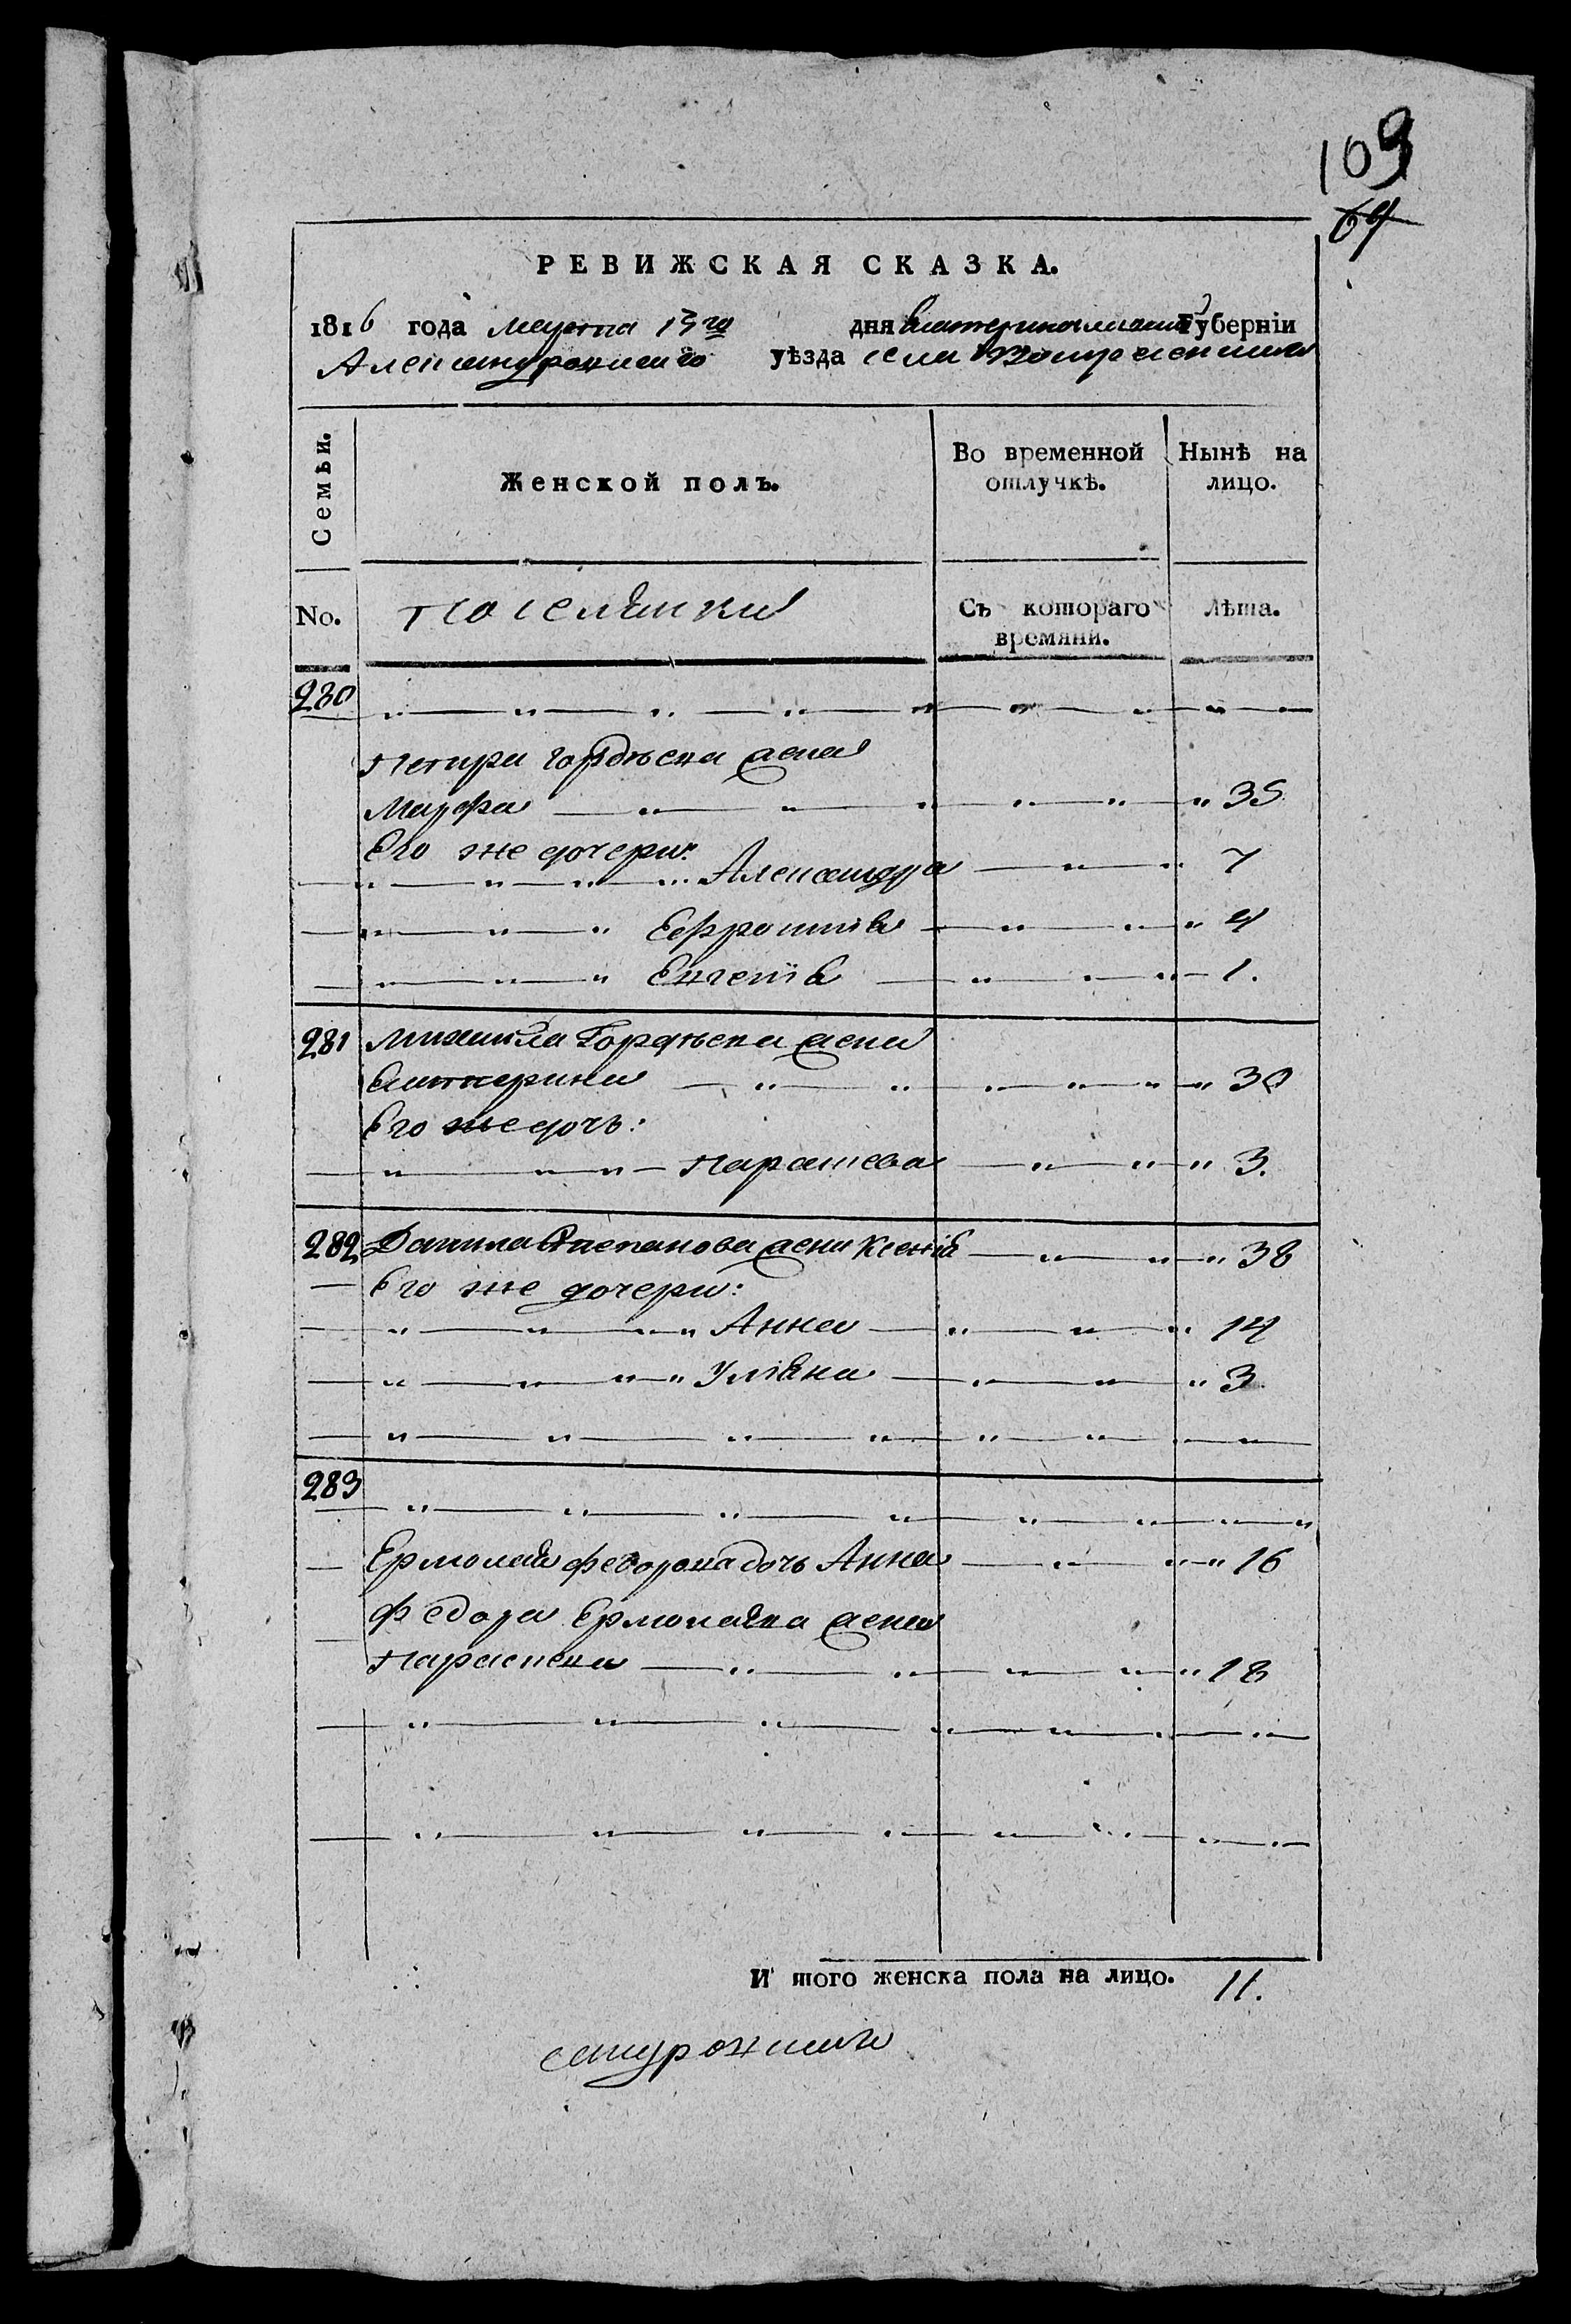 109
64
РЕВИЖСКАЯ СКАЗКА.
1816 года марта 13го дня Екатеринославской Губернiи
Александровскаго уѣзда села Воскресенскаго
Семьи.
Женской полъ.
Во временной отлучкѣ.
Нынѣ на лицо.
No.
поселянки
Съ котораго времяни.
Лѣта.
280
Петра Гордѣева жена
Марфа 35
Его же дочери:
Александра 7
Ефросинiя 4
Евгенiя 1.
281 Михайла Гордѣева жена
Екатерина 30
Его же дочь:
Парасковiя 3.
282 Данила Степанова жена Ксенiя 38
Его же дочери:
Анна 14
Улiяна 3
283
Ермолая Федорова дочь Анна 16
Федора Ермолаева жена
Параскева 18
И того женска пола на лицо. 11.